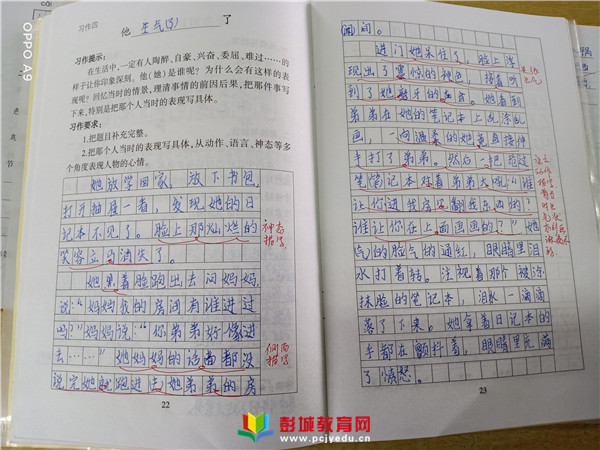 习作四
他 生气(了) 了
习作提示:
在生活中,一定有人陶醉、自豪、兴奋、委屈、难过……的
样子让你印象深刻。他(她)是谁呢?为什么会有这样的表
现呢?回忆当时的情景,理清事情的前因后果,把那件事写
下来,特别是把那个人当时的表现写具体。
习作要求:
1.把题目补充完整。
2.把那个人当时的表现写具体,从动作、语言、神态等多
个角度表现人物的心情。
她放学回家,放下书包,
打开抽屉一看,发现她的日
记本不见了。脸上那灿烂的
笑容立马消失了。
神态
描写
她黑着脸跑出去问妈妈,
说:“妈妈我的房间有谁进过
吗?”妈妈说:“你弟弟好像进
去……”她妈妈的话音都没
说完她就跑进去她弟弟的房
侧面
描写
22
间。
进门她呆住了,脸上浮
现出了震惊的神色,接着听
到了她磨牙的声音。她看到
弟弟在她的笔记本上乱涂乱
画,一向温柔的她竟直接伸
手打了弟弟。然后一把抢过
笔记本对着弟弟大吼:“谁
让你进我房间翻我东西的?
谁让你在上面画画的?”她
气的脸气的通红,眼睛里泪
水打着转。注视着那个被涂
抹脸的笔记本,泪水一滴滴
落了下来。她拿着日记本的
手都在颤抖着,眼睛里充满
了愤怒。
23
OPPO A9
彭城教育网
www.pcjyedu.cn